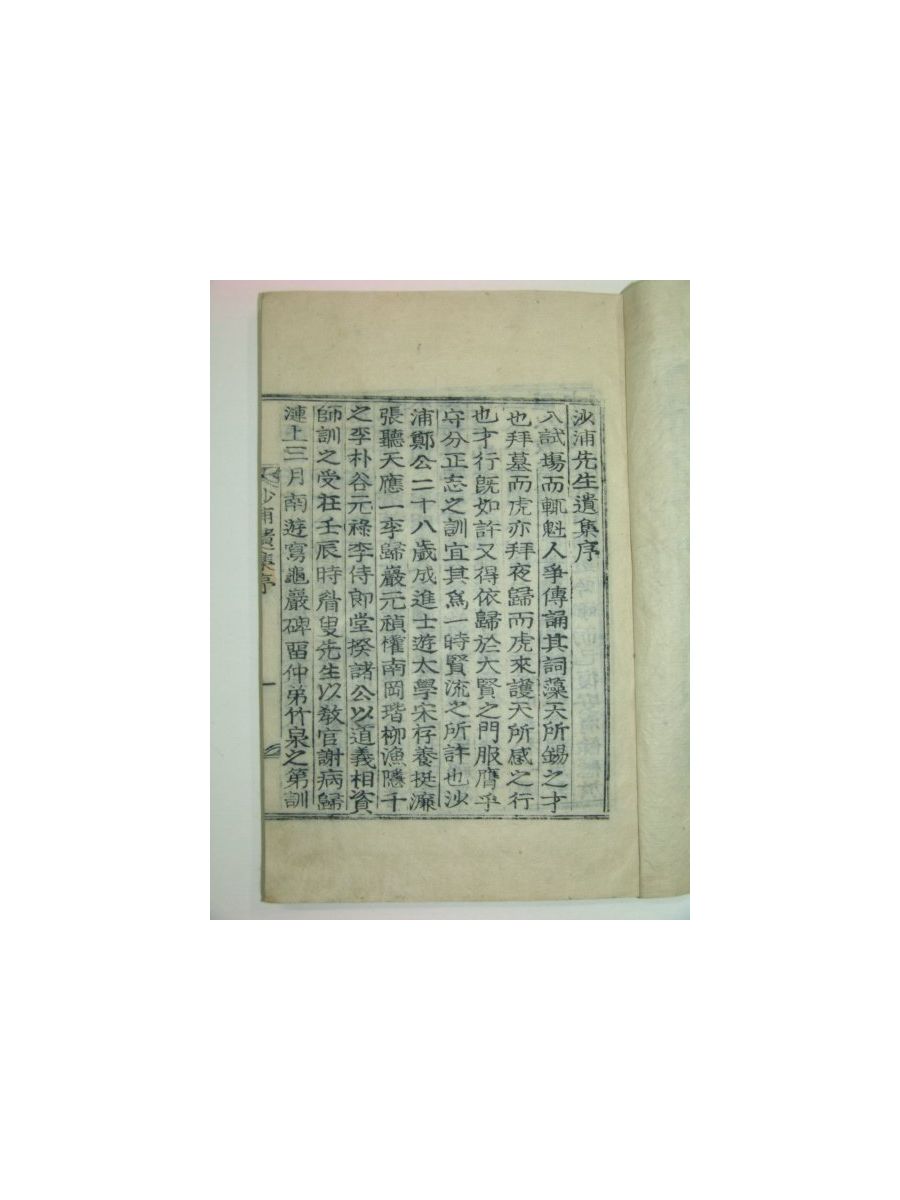 沙浦先生遺集序
入試場而輒魁人爭傳誦其詞藻天所錫之才
也拜墓而虎亦拜夜歸而虎來護天所感之行
也才行旣如許又得依歸於大賢之門服膺乎
守分正志之訓宜其爲一時賢流之所許也沙
浦鄭公二十八歲成進士遊太學宋存養挺濂
張聽天應一李歸巖元禎權南岡瑎柳漁隱千
之李朴谷元祿李侍郞堂揆諸公以道義相資
師訓之受在壬辰時眉叟先生以敎官謝病歸
漣上三月南遊寫龜巖碑留仲弟竹泉之第訓
沙浦遺集序
一